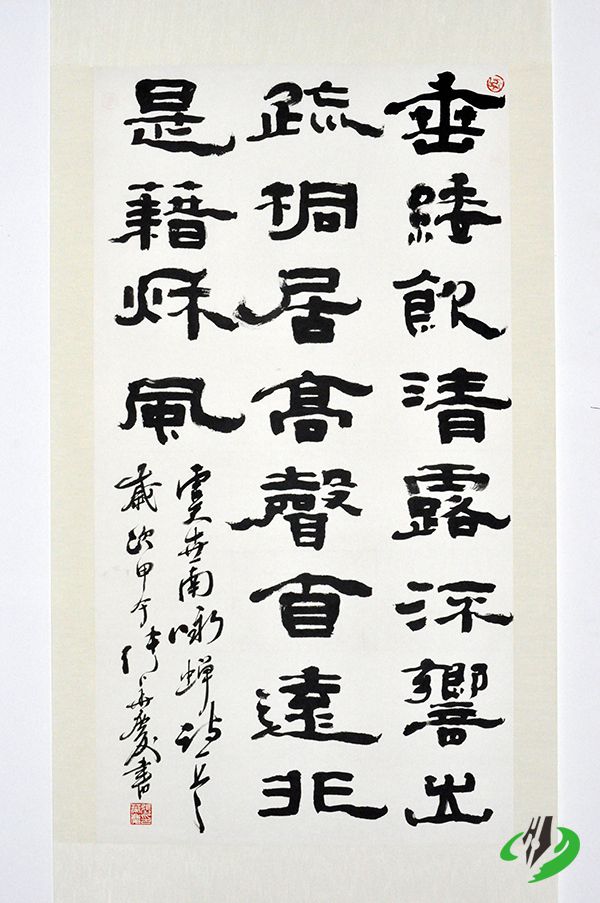 垂緌飲清露流響出
疏桐居高聲自遠非
是藉秋風
虞世南咏蝉诗一首
歲次甲午张華慶書